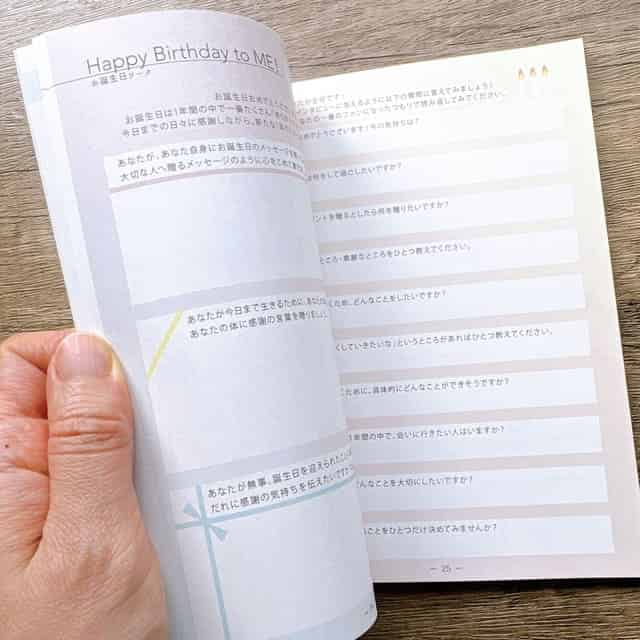 Happy Birthday to ME!
お誕生日データ
お誕生日は1年間の中で一番たくさん
今日までの日々に感謝しながら、
あなたが、あなた自身にお誕生日のメッセージを
大切な人へ贈るメッセージのように心をこめて
あなたが今日まで生きるために、
あなたの体に感謝の言葉を贈りましょう
あなたが無事、誕生日を迎えられた
だれに感謝の気持ちを伝えたいですか
えるように以下の質問に答えてみましょう♪
の一番のファンになったつもりで読み返してみてください。
でとうございます!今の気持ちは?
何をして過ごしたいですか?
ントを贈るとしたら何を贈りたいですか?
ところ・素敵なところをひとつ教えてください。
ため、どんなことをしたいですか?
くしていきたいな」というところがあればひとつ教えてください。
ために、具体的にどんなことができそうですか?
1年間の中で、会いに行きたい人はいますか?
どんなことを大切にしたいですか?
いことをひとつだけ決めてみませんか?
— 25 —